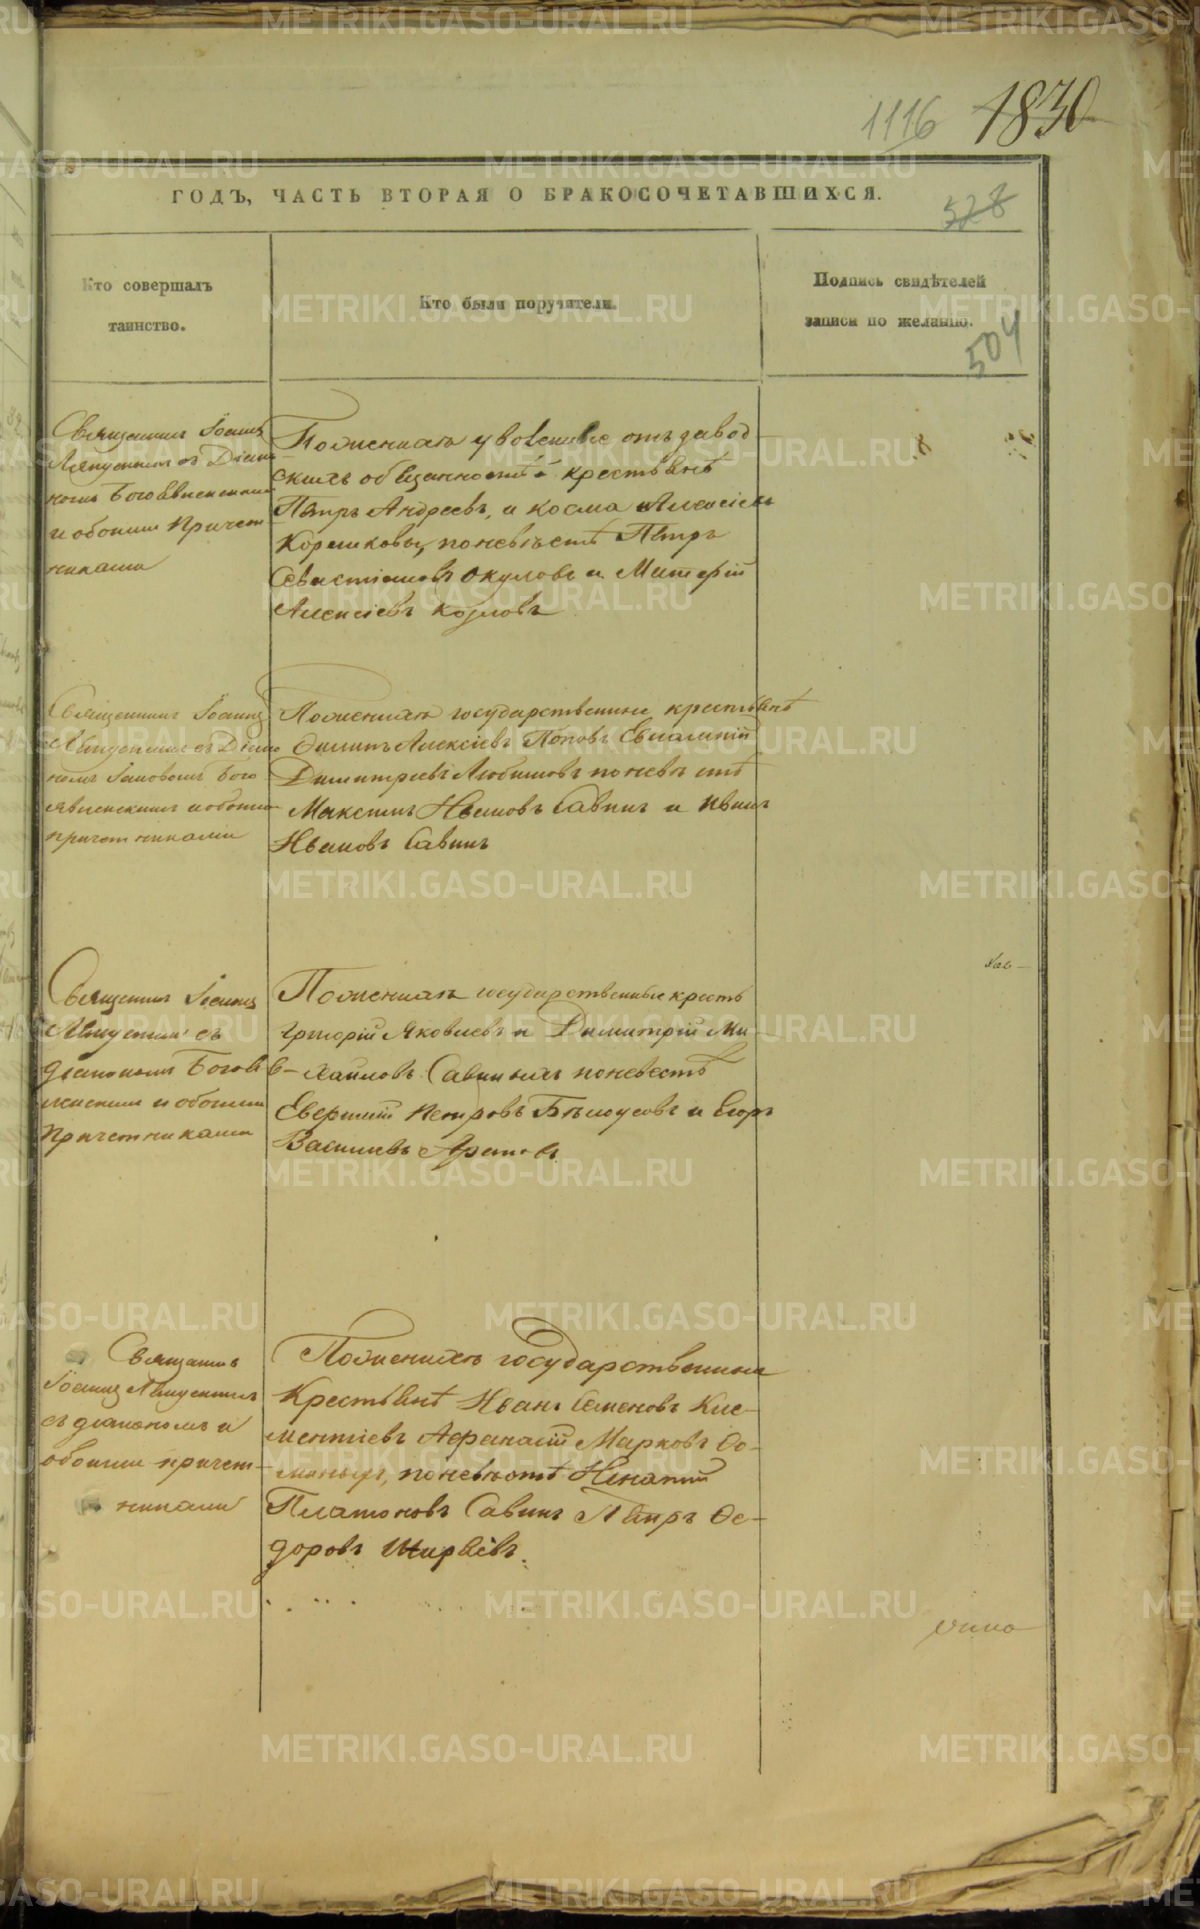 1116 1830
ГОДЪ, ЧАСТЬ ВТОРАЯ О БРАКОСОЧЕТАВШИХСЯ.
528
Кто совершалъ
таинство.
Кто были поручители.
Подпись свидѣтелей
записи по желанію.
504
Священникъ Іоаннъ
съ Діако
номъ Богоявленскимъ
и обоими причет
никами
По женихѣ уволенные отъ завод
скихъ обязанностей крестьянѣ
Пётръ Андреевъ, и Косма Алексіевъ
Кормиковы, по невѣстѣ Пётръ
Севастіановъ Окуловъ и
Алексіевъ Козловъ
Священникъ Іоаннъ
съ Діако
номъ Іаковомъ Бого
явленскимъ и обоими
причетниками
По женихѣ государственные крестьянѣ
Филипъ Алексіевъ Поповъ Евлампій
Димитріевъ Любимовъ по невѣстѣ
Максимъ Ивановъ Савинъ и Иванъ
Ивановъ Савинъ
Священникъ Іоаннъ
съ
діакономъ Богояв
ленскимъ и обоими
причетниками
По женихѣ государственные кресть
Григорій Яковлевъ и Димитрій Ми-
хайловъ Савиныхъ по невестѣ
Петровъ Бѣлоусовъ и Егоръ
Василіевъ
Священникъ
Іоаннъ
съ діакономъ и
обоими причет-
никами
По женихѣ государственные
Крестьянѣ Иванъ Семеновъ Кле-
ментіевъ Афанасій Марковъ Ѳо-
миныхъ, по невѣстѣ Игнатій
Платоновъ Савинъ Пётръ Ѳе-
доровъ Ширяевъ.
METRIKI.GASO-URAL.RU